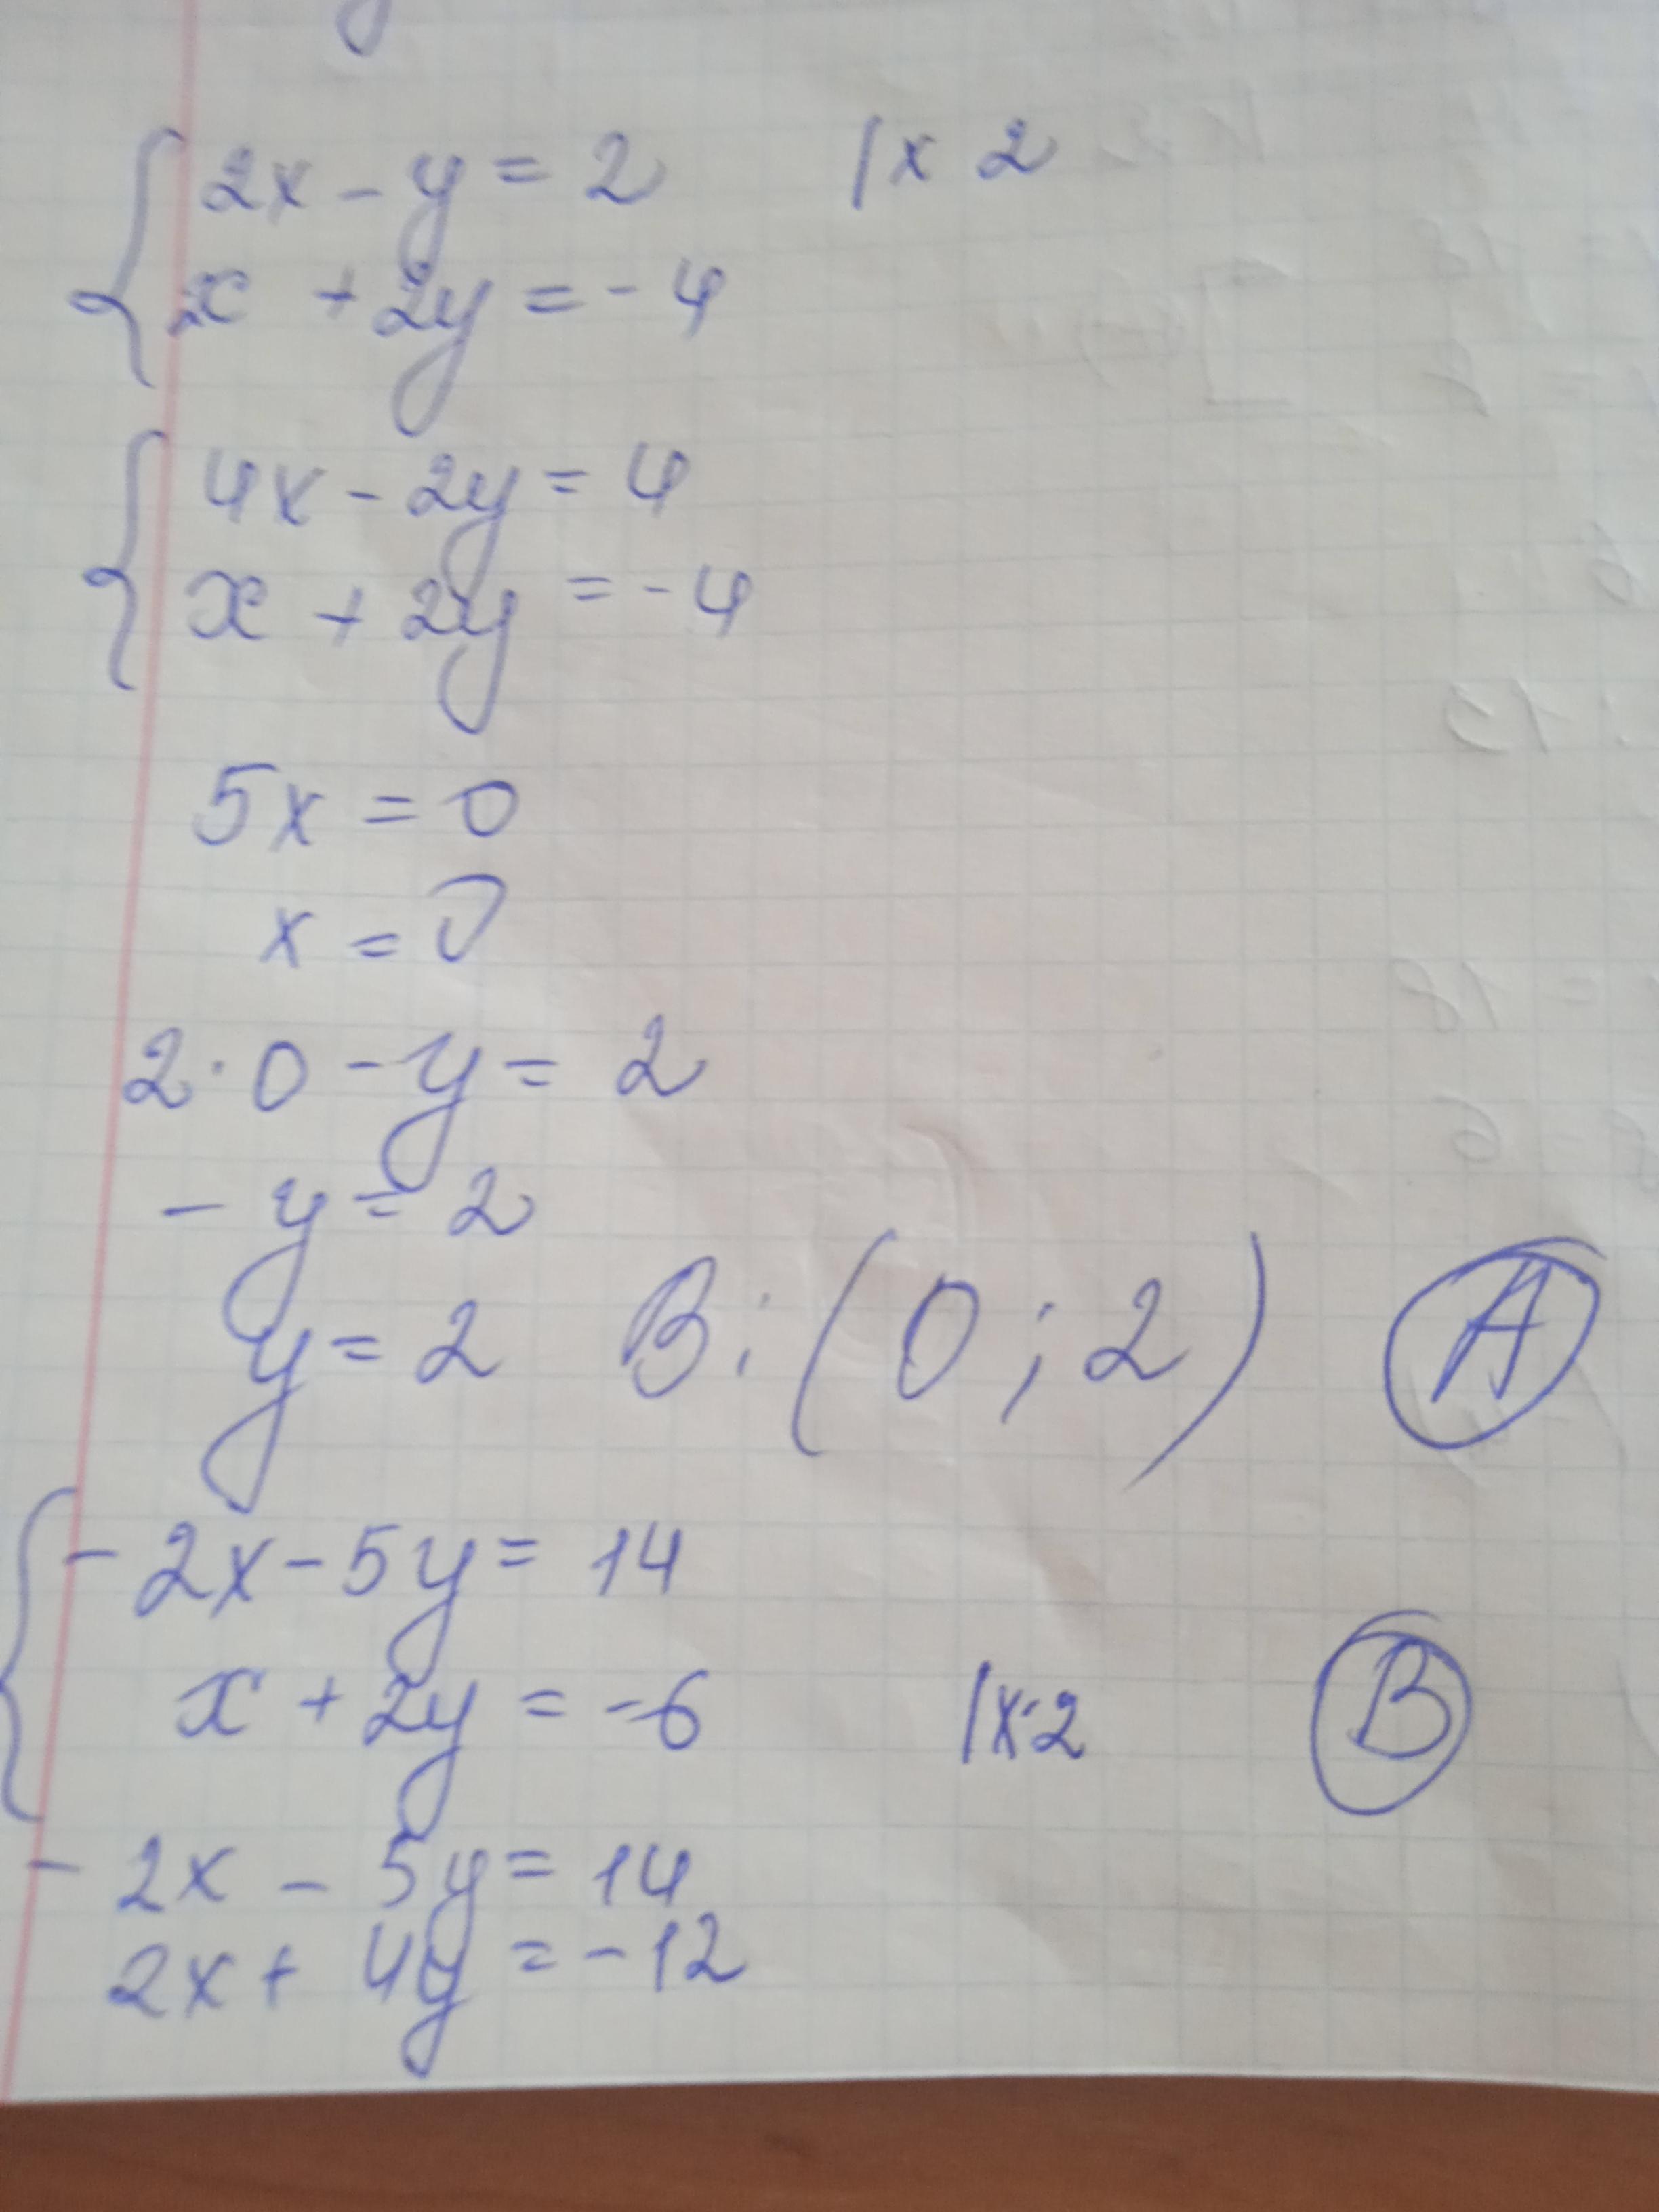 2x - y = 2 | x 2
x + 2y = - 4
4x - 2y = 4
x + 2y = - 4
5x = 0
x = 0
2 · 0 - y = 2
- y = 2
y = 2 В: (0 ; 2) А
- 2x - 5y = 14
x + 2y = - 6 | x 2 В
- 2x - 5y = 14
2x + 4y = - 12